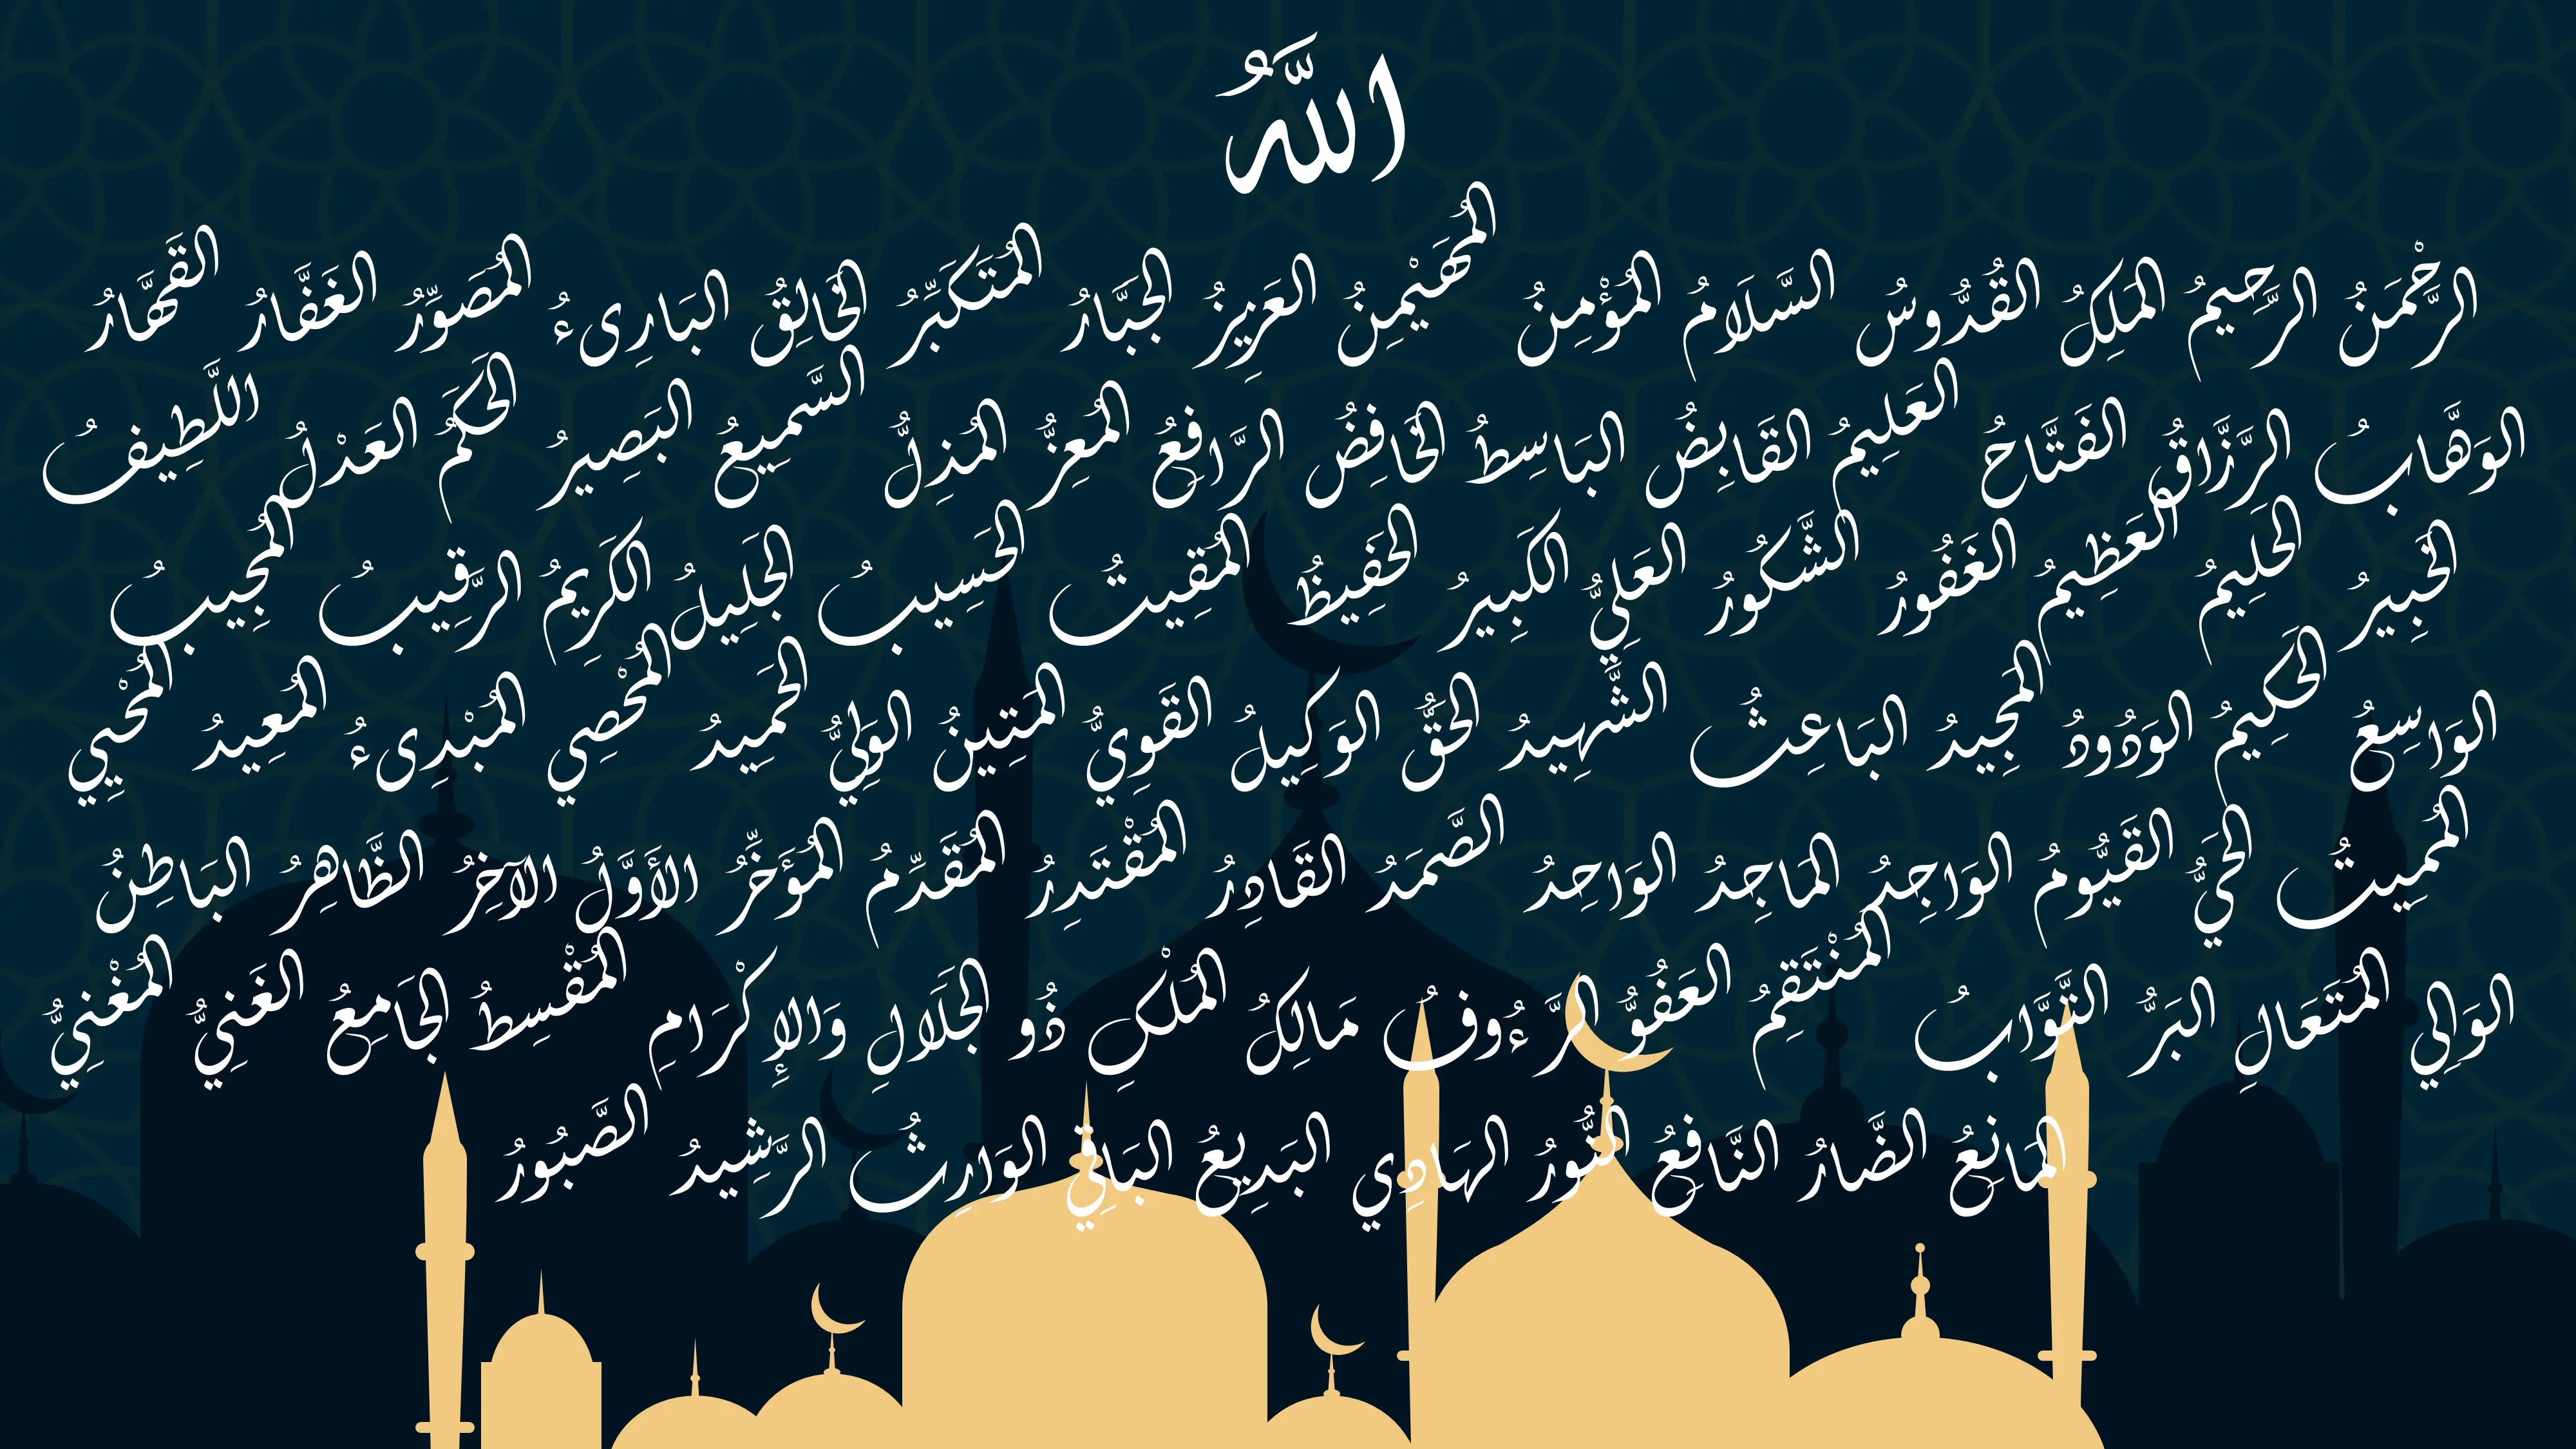 اللَّهُ
الرَّحْمَنُ الرَّحِيمُ المَلِكُ القُدُّوسُ السَّلَامُ المُؤْمِنُ المُهَيْمِنُ العَزِيزُ الجَبَّارُ المُتَكَبِّرُ الخَالِقُ البَارِىءُ المُصَوِّرُ الغَفَّارُ القَهَّارُ
الوَهَّابُ الرَّزَّاقُ الفَتَّاحُ العَلِيمُ القَابِضُ البَاسِطُ الخَافِضُ الرَّافِعُ المُعِزُّ المُذِلُّ السَّمِيعُ البَصِيرُ الحَكَمُ العَدْلُ اللَّطِيفُ
الخَبِيرُ الحَلِيمُ العَظِيمُ الغَفُورُ الشَّكُورُ العَلِيُّ الكَبِيرُ الحَفِيظُ المُقِيتُ الحَسِيبُ الجَلِيلُ الكَرِيمُ الرَّقِيبُ المُجِيبُ
الوَاسِعُ الحَكِيمُ الوَدُودُ المَجِيدُ البَاعِثُ الشَّهِيدُ الحَقُّ الوَكِيلُ القَوِيُّ المَتِينُ الوَلِيُّ الحَمِيدُ المُحْصِي المُبْدِىءُ المُعِيدُ المُحْيِي
المُمِيتُ الحَيُّ القَيُّومُ الوَاجِدُ المَاجِدُ الوَاحِدُ الصَّمَدُ القَادِرُ المُقْتَدِرُ المُقَدِّمُ المُؤَخِّرُ الأَوَّلُ الآخِرُ الظَّاهِرُ البَاطِنُ
الوَالِي المُتَعَالِ البَرُّ التَّوَّابُ المُنْتَقِمُ العَفُوُّ الرَّءُوفُ مَالِكُ المُلْكِ ذُو الجَلَالِ وَالإِكْرَامِ المُقْسِطُ الجَامِعُ الغَنِيُّ المُغْنِيُّ
المَانِعُ الضَّارُ النَّافِعُ النُّورُ الهَادِي البَدِيعُ البَاقِي الوَارِثُ الرَّشِيدُ الصَّبُورُ